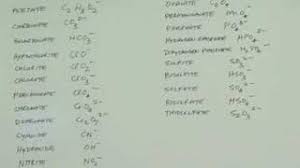 ACETATE C₂H₃O₂⁻
CARBONATE CO₃²⁻
BICARBONATE HCO₃⁻
HYPOCHLORITE ClO⁻
CHLORITE ClO₂⁻
CHLORATE ClO₃⁻
PERCHLORATE ClO₄⁻
CHROMATE CrO₄²⁻
DICHROMATE Cr₂O₇²⁻
CYANIDE CN⁻
HYDROXIDE OH⁻
NITRITE NO₂⁻
OXALATE C₂O₄²⁻
PERMANGANATE MnO₄⁻
PHOSPHATE PO₄³⁻
HYDROGEN PHOSPHATE HPO₄²⁻
DIHYDROGEN PHOSPHATE H₂PO₄⁻
SULFITE SO₃²⁻
BISULFITE HSO₃⁻
SULFATE SO₄²⁻
BISULFATE HSO₄⁻
THIOSULFATE S₂O₃²⁻